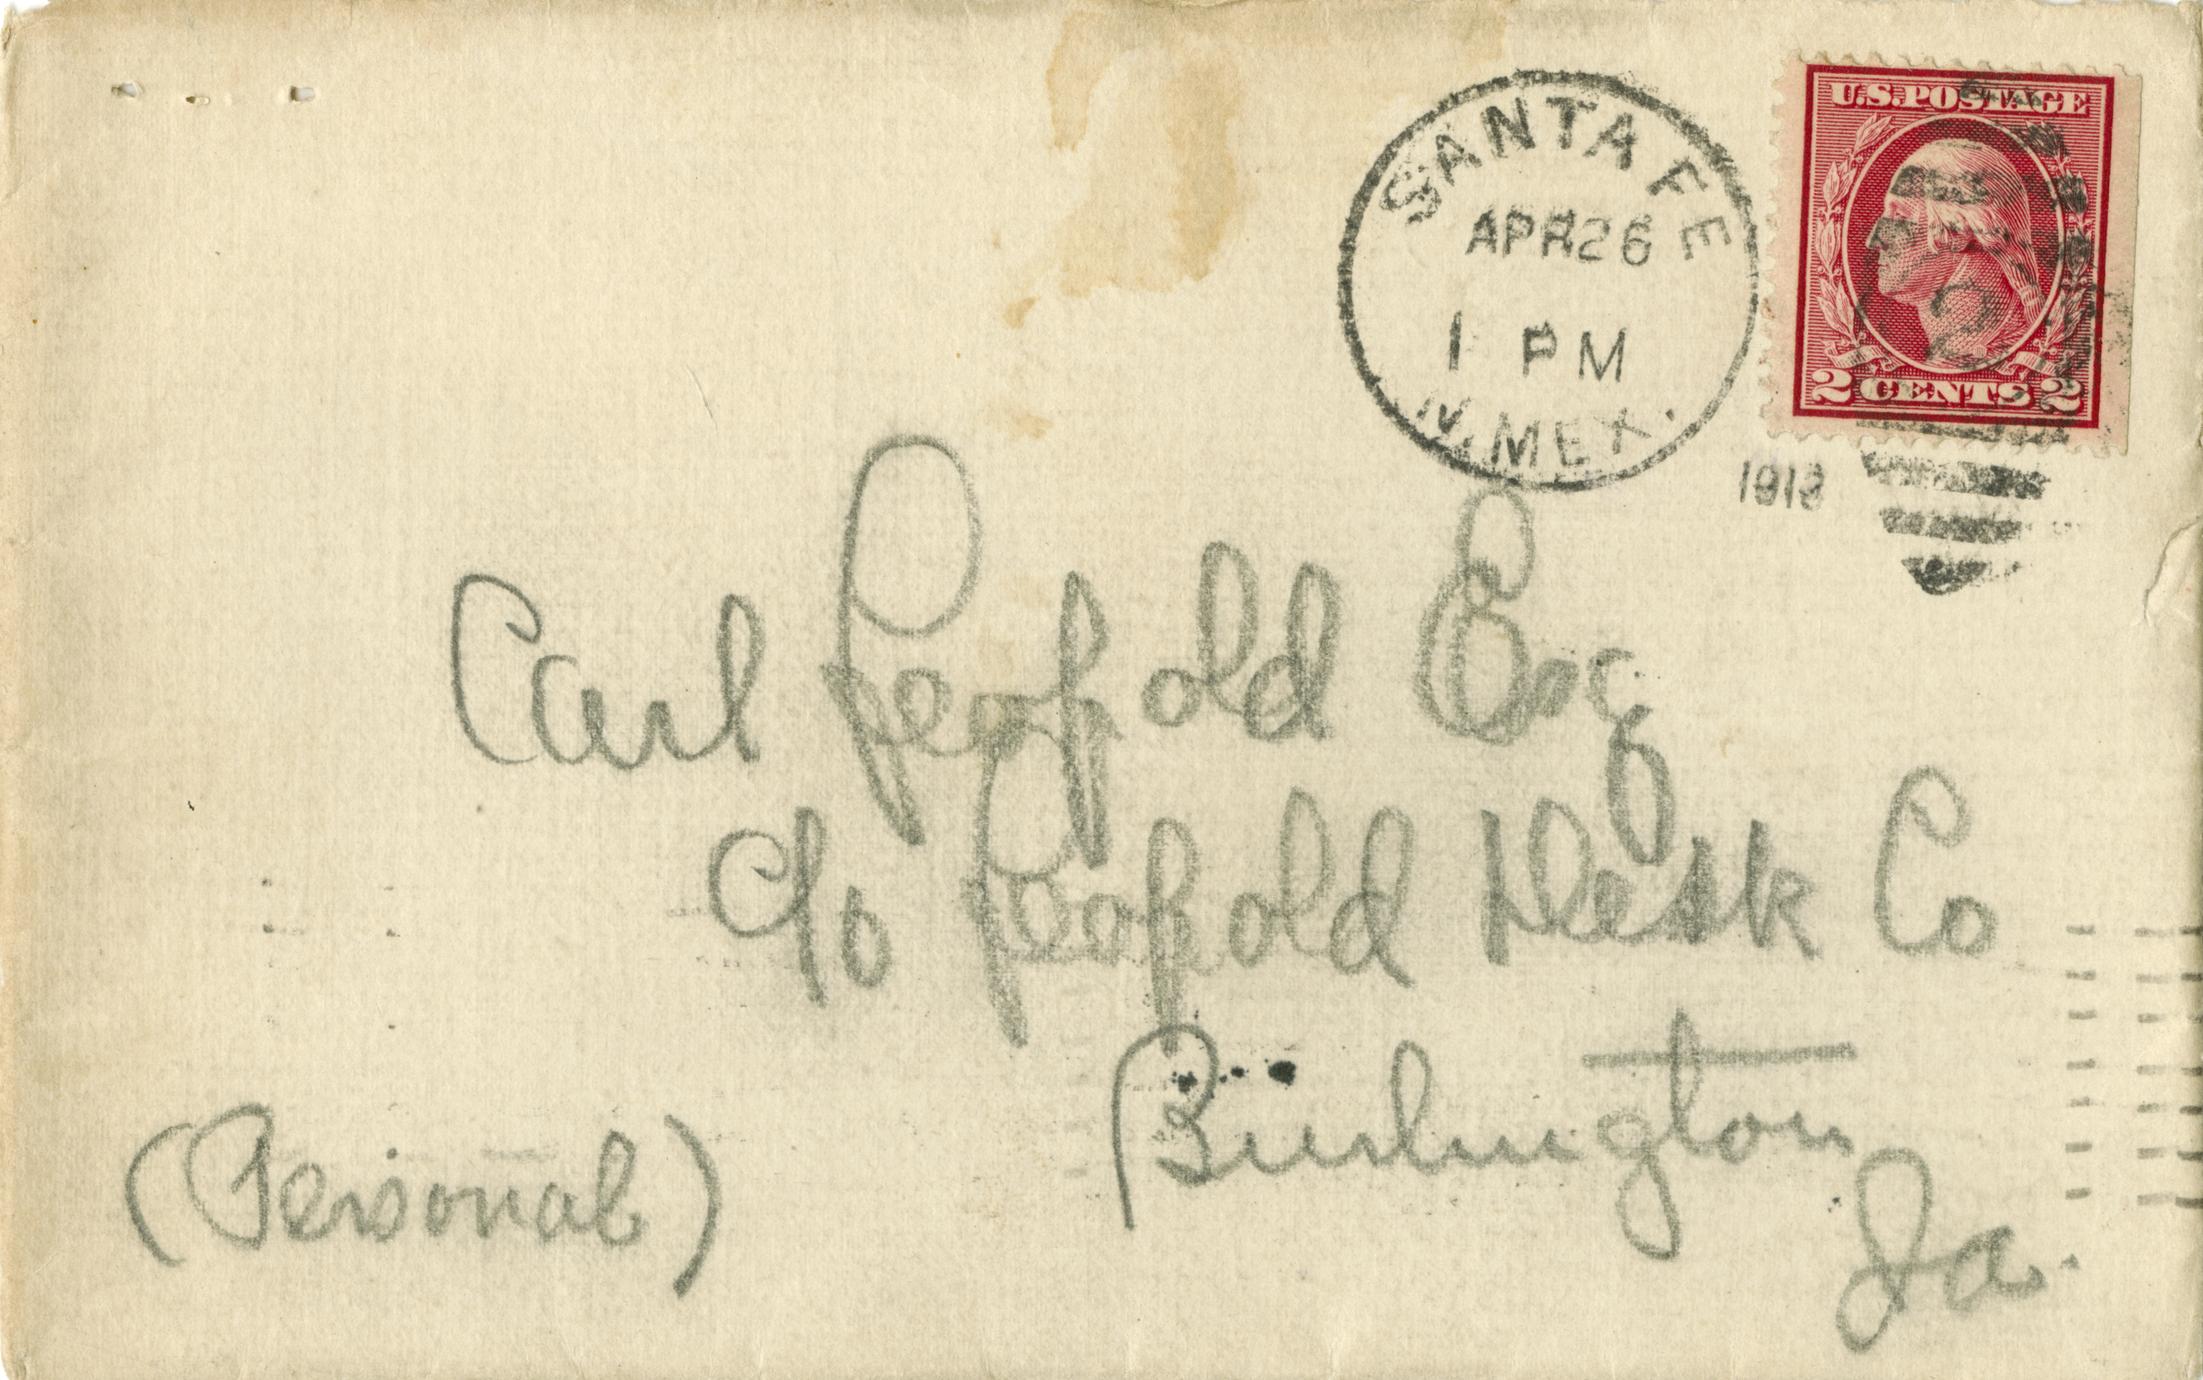 SANTA FE
APR 26
1 PM
N. MEX.
U.S. POSTAGE
2 CENTS 2
2
Carl Leopold Esq
c/o Leopold Desk Co
Burlington
Ia.
(Personal)